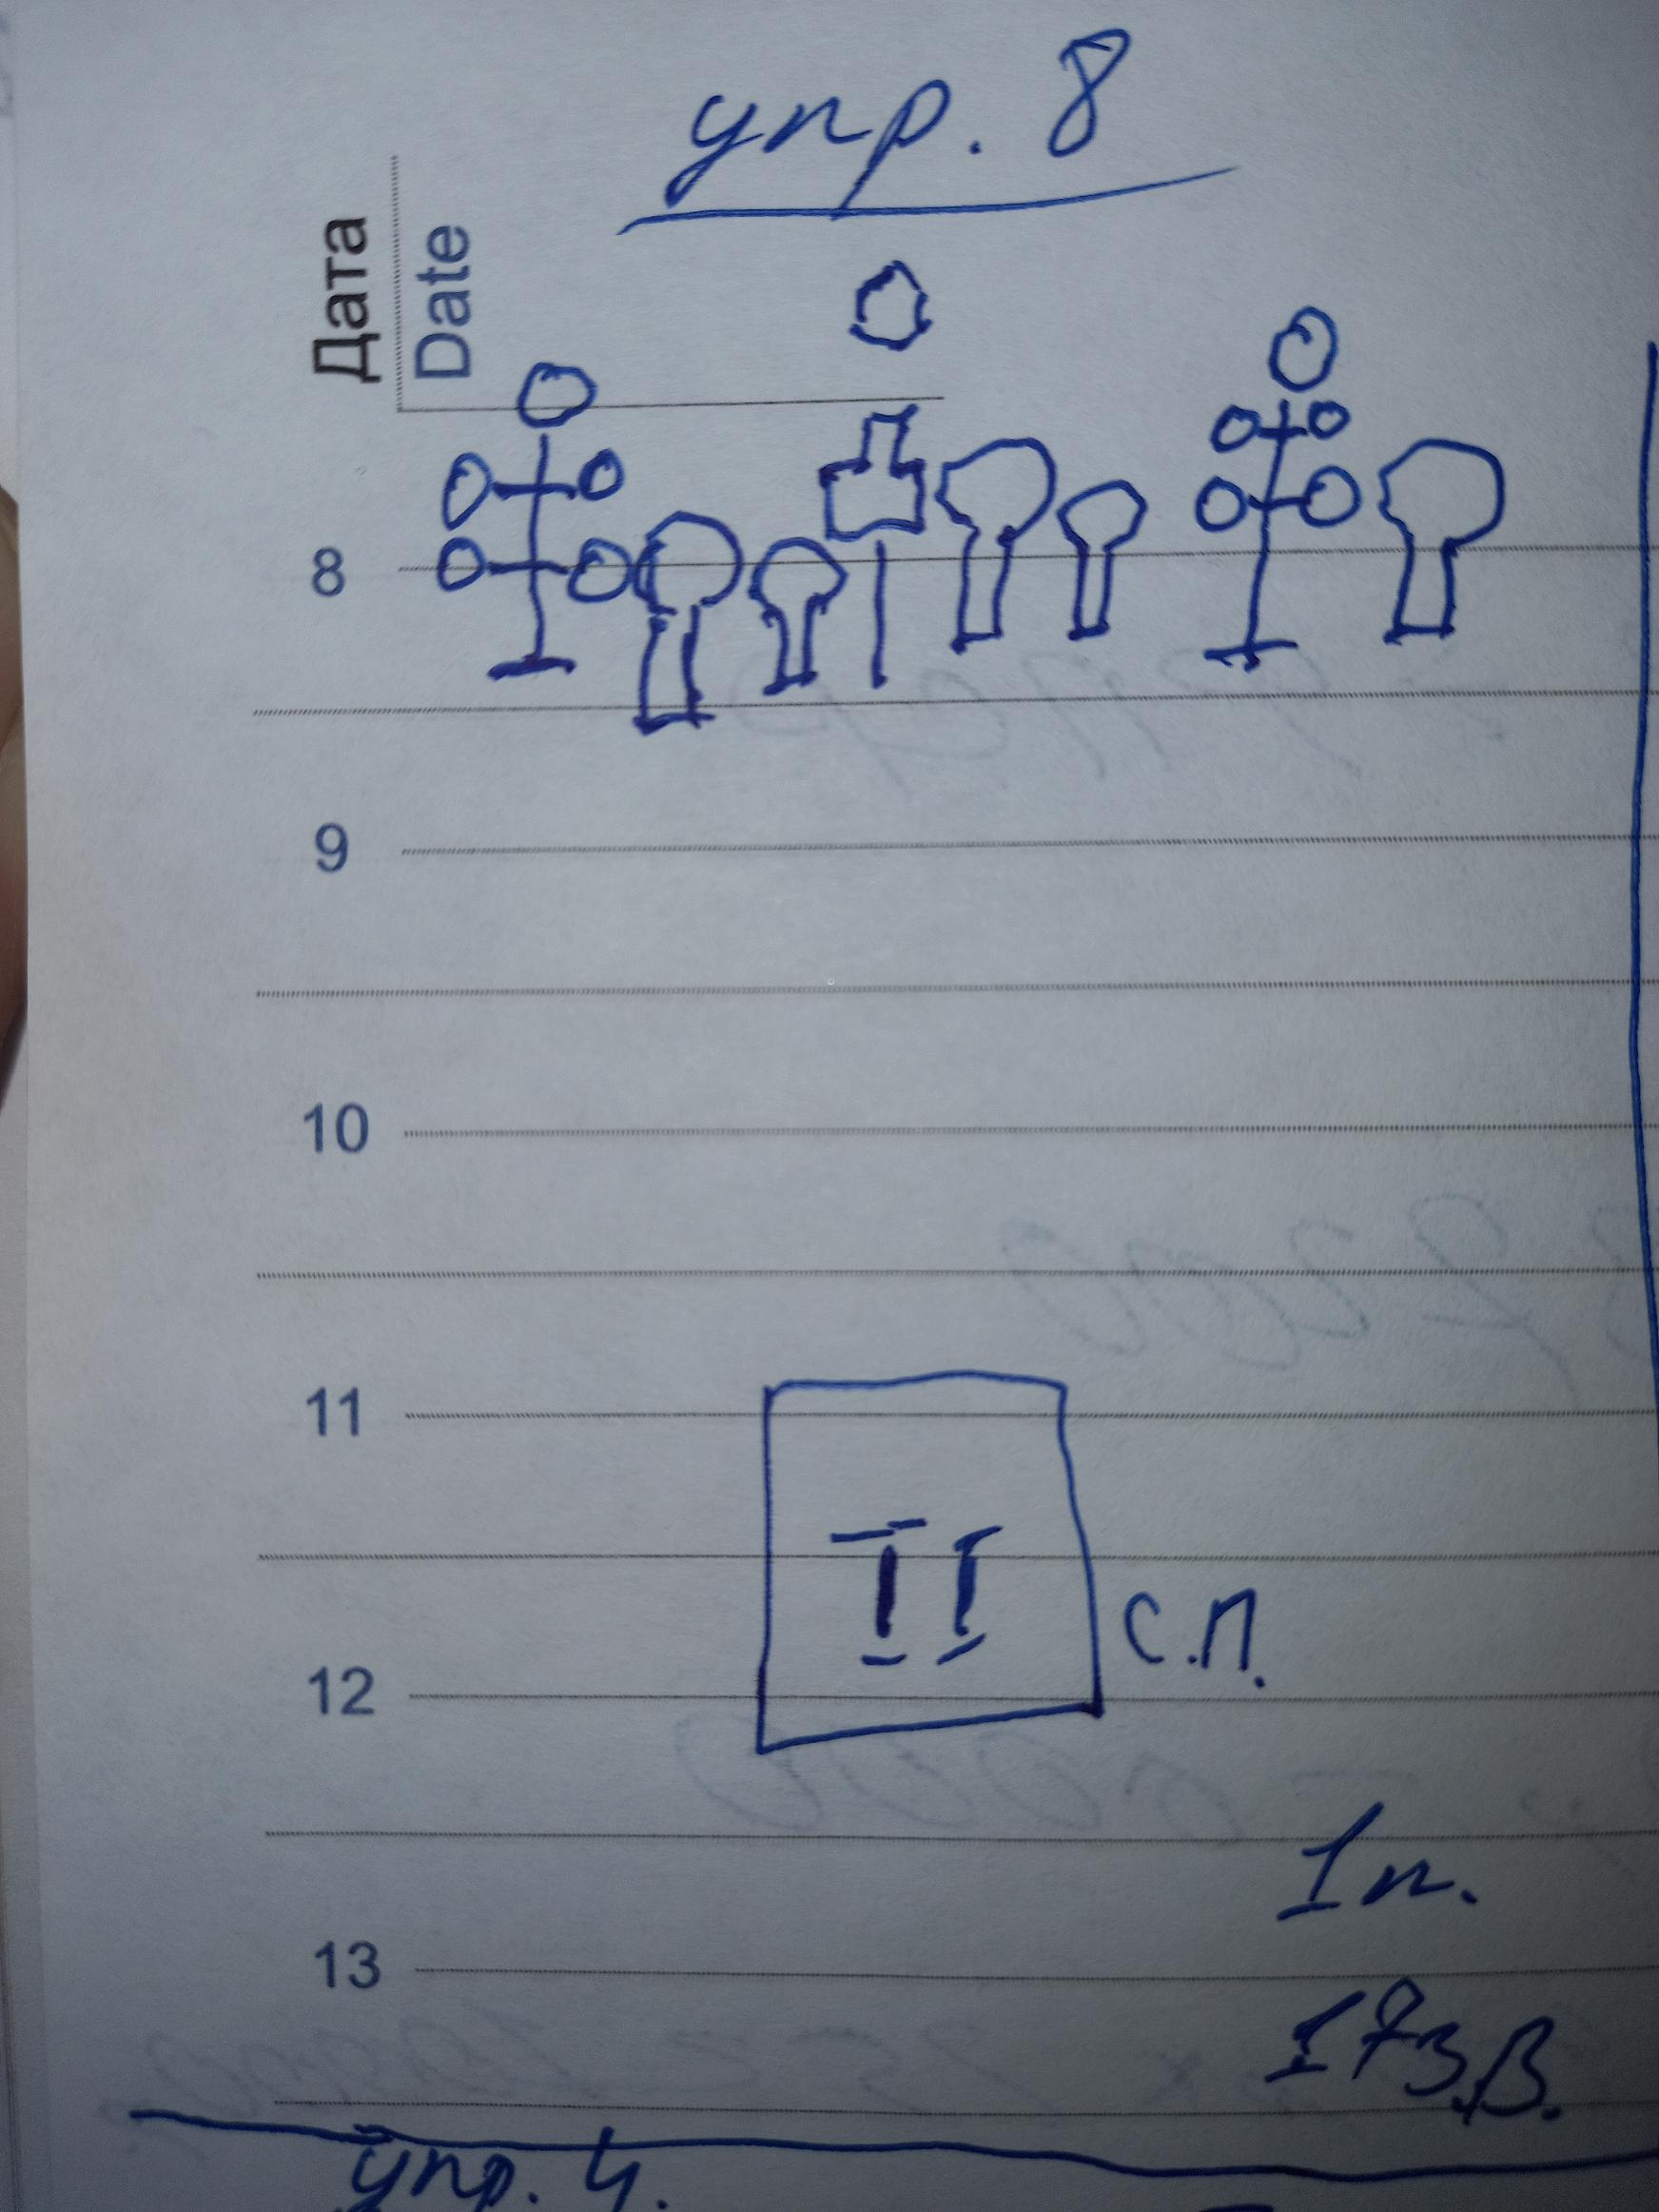 упр. 8
Дата
Date
8
9
10
11
II
с.п.
12
1 п.
13
17 з.в.
упр. 4.